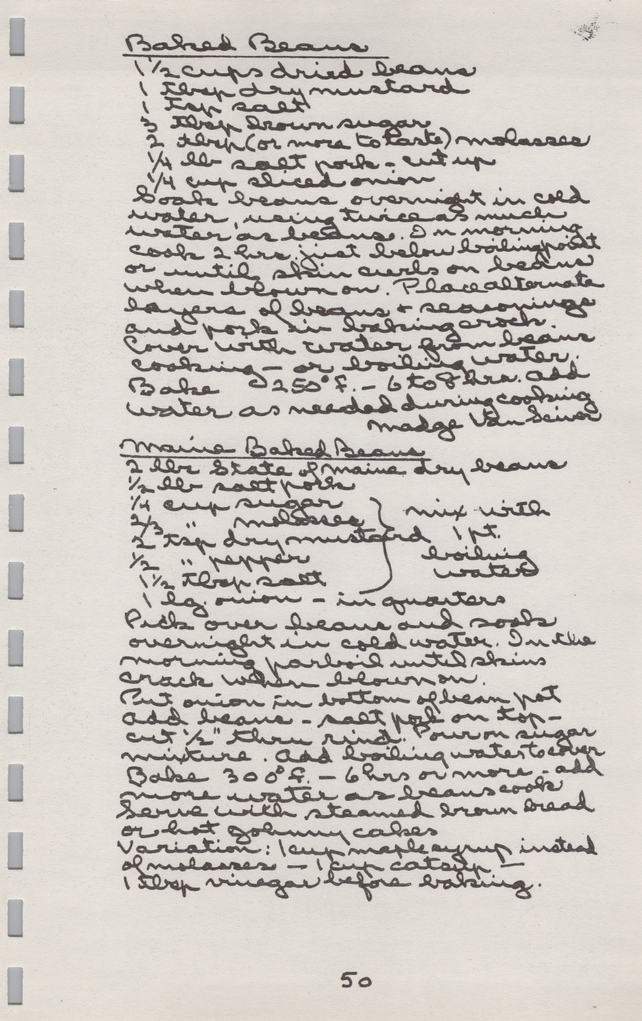 Baked Beans
1 1/2 cups dried beans
1 tbsp dry mustard
1 tsp salt
3 tbsp brown sugar
2 tbsp (or more to taste) molasses
1/4 lb salt pork - cut up
1/4 cup sliced onion
Soak beans overnight in cold
water, using twice as much
water as beans. In morning
cook 2 hrs. just below boiling point
or until skin curls on beans
when blown on. Place alternate
layers of beans + seasonings
and pork in baking crock.
Cover with water from beans
cooking - or boiling water.
Bake 250° f. - 6 to 8 hrs. add
water as needed during cooking
Madge Van Seiver
Maine Baked Beans
2 lbs State of Maine dry beans
1/2 lb salt pork
1/4 cup sugar
2/3 " molasses
2 tsp dry mustard
1/2 " pepper
1 1/2 tbsp salt
mix with
1 pt.
boiling
water
1 lg. onion - in quarters
Pick over beans and soak
overnight in cold water. In the
morning parboil until skins
crack when blown on.
Put onion in bottom of bean pot
add beans - salt pork on top -
cut 1/2" thru rind. Pour on sugar
mixture. Add boiling water to cover
Bake 300° f. - 6 hrs or more - add
more water as beans cook
Serve with steamed brown bread
or hot Johnny cakes
Variation: 1 cup maple syrup instead
of molasses - 1 cup catsup -
1 tbsp vinegar before baking.
50